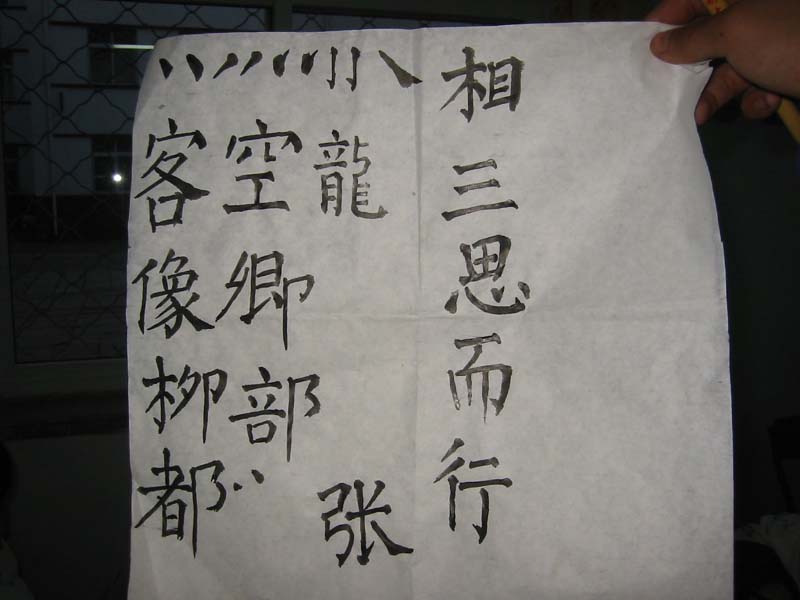 相三思而行
龍张
空卿部
客像柳都